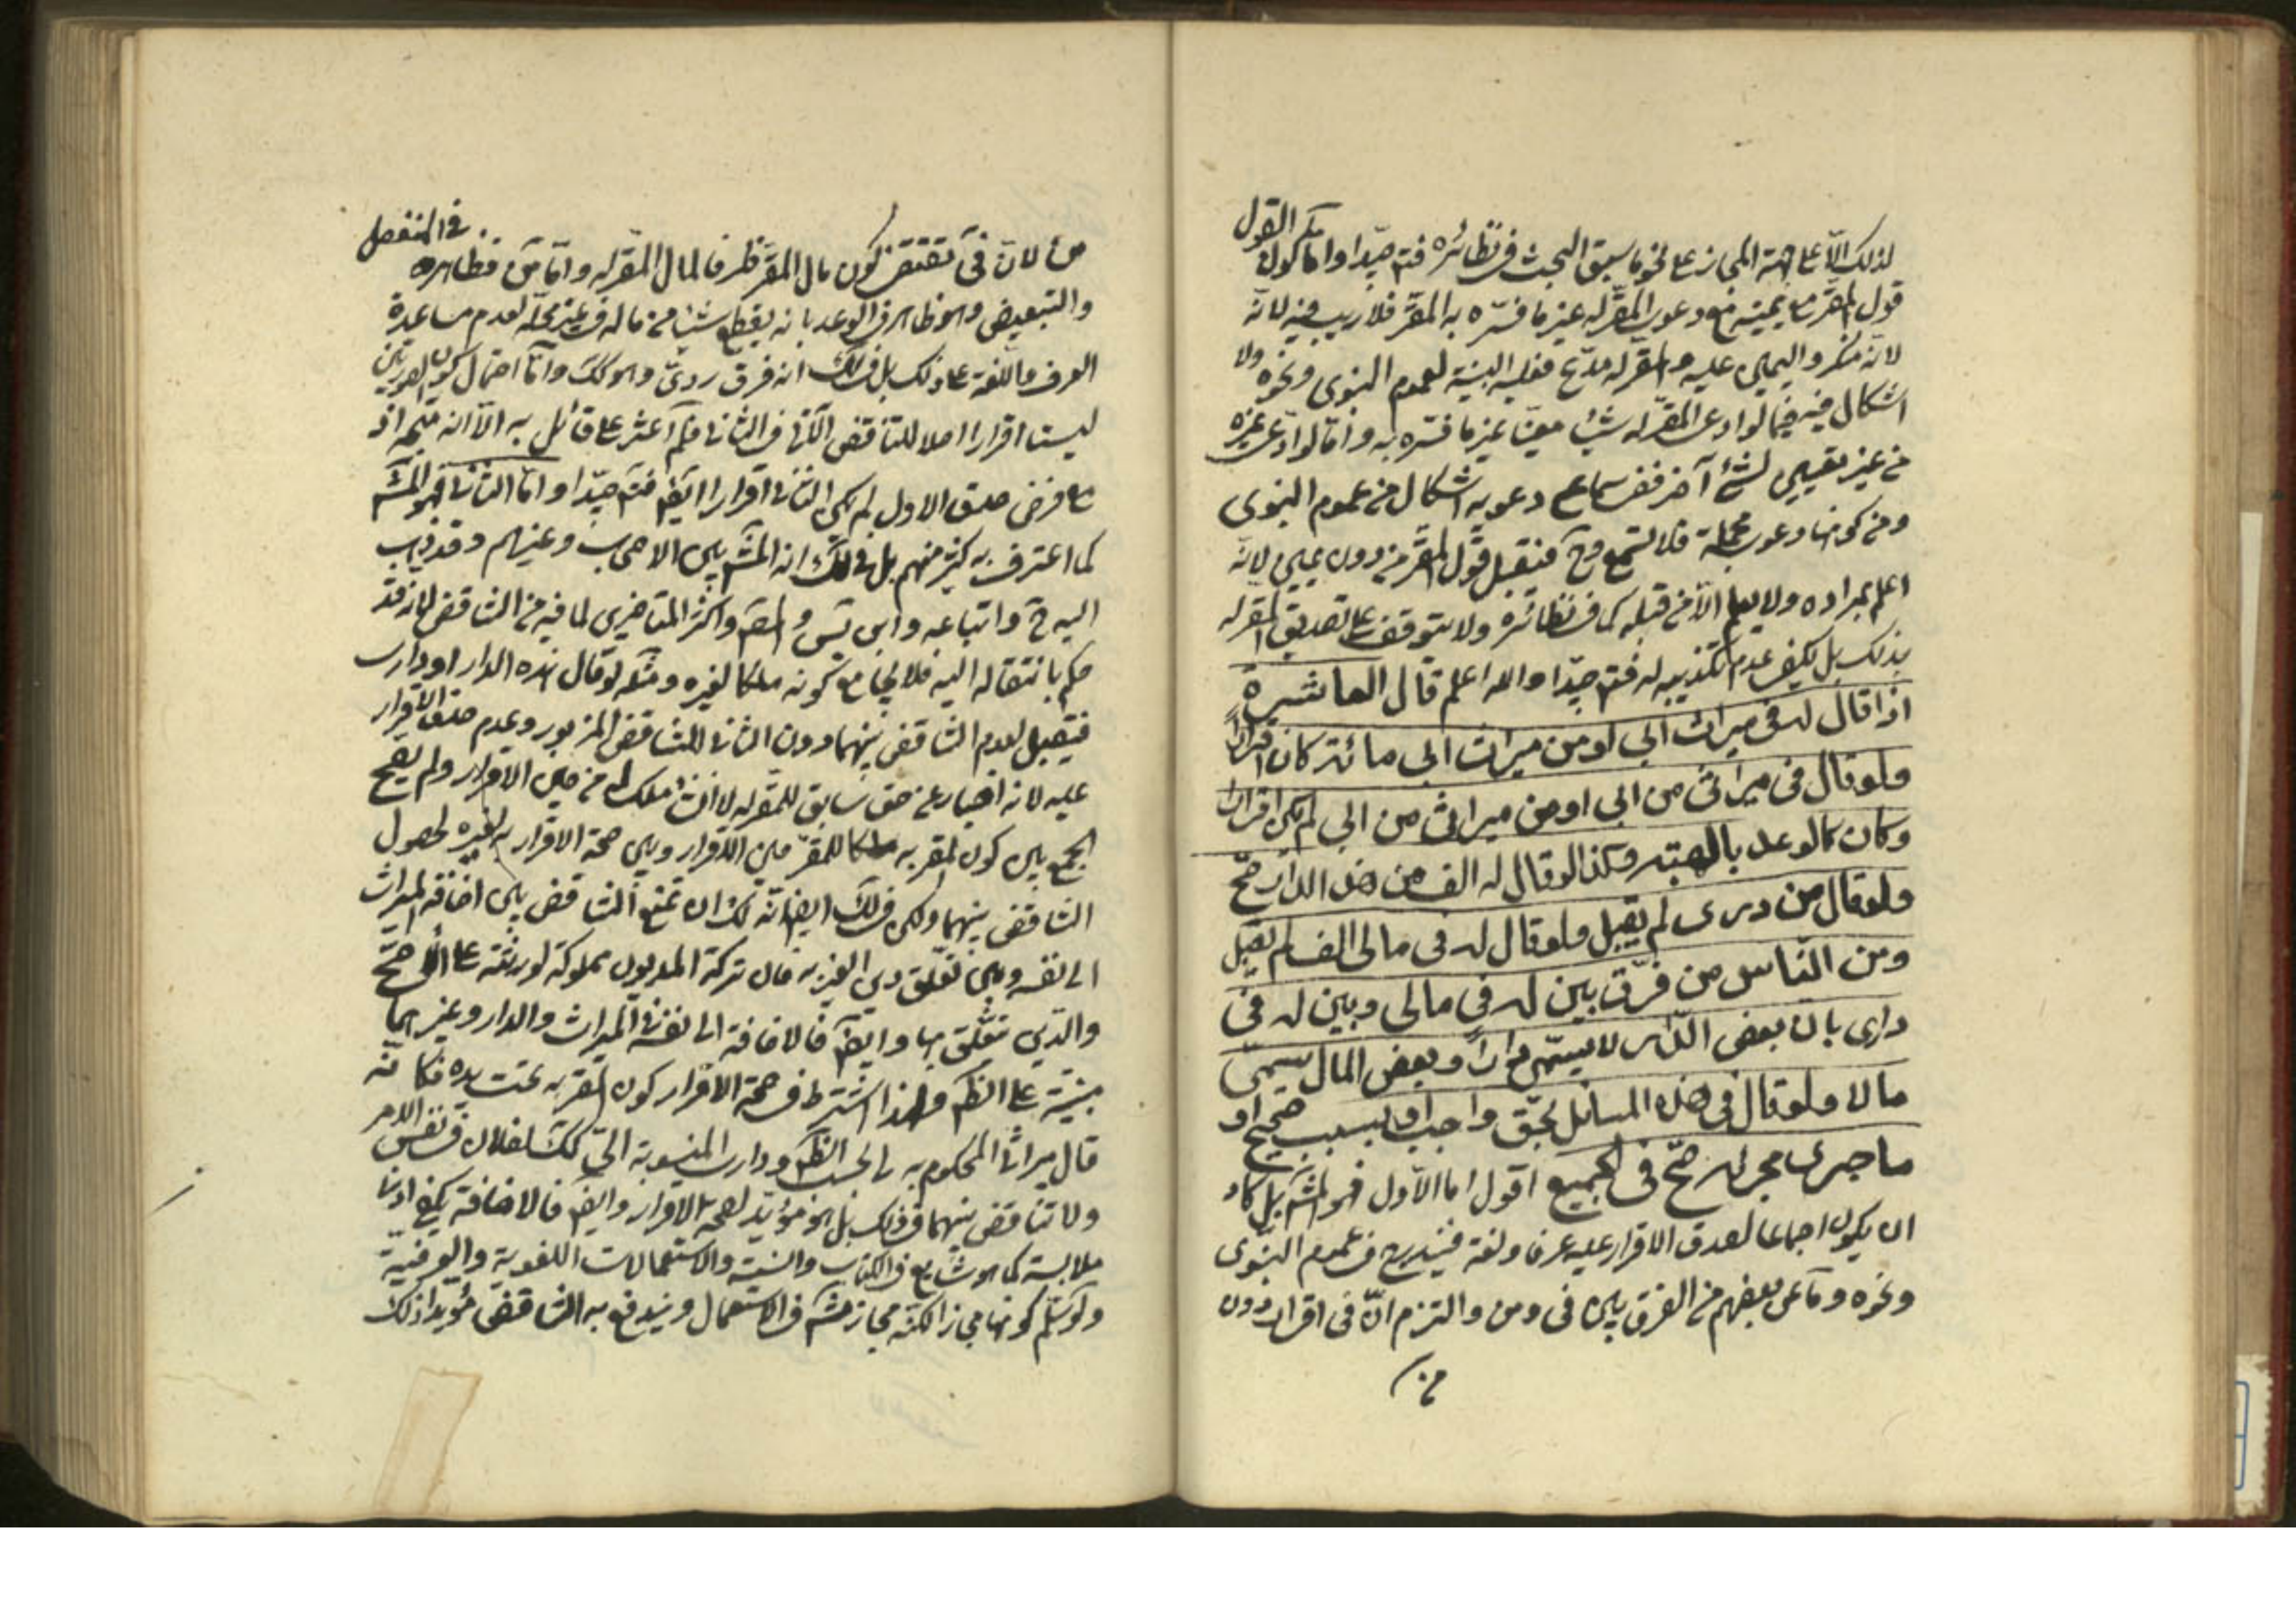 لذلك الّا على جهة المجاز على نحو ما سبق البحث في نظائره فتم جيّدا واما كون القول
قول المقرّ مع يمينه مع دعوى المقرّ له غير ما فسّره به المقرّ فلا ريب فيه لانّه
لانّه منكر واليمين عليه والمقرّ له مدّع فعليه البيّنة لعموم النبوى ونحوه ولا
اشكال فيه فيما لو ادعى المقرّ له شيئا معيّنا غير ما فسّره به وامّا لو ادّعى غيره
من غير تعيين لشئ آخر ففى سماع دعويه اشكال من عموم النبوى
ومن كونها دعوى مجملة فلا تسمع وح فيقبل قول المقرّ من دون يمين لانّه
اعلم بمراده ولا يعلم الّا من قبله كما في نظائره ولا يتوقف على تصديق المقرّ له
بذلك بل يكفى عدم تكذيبه له فتم جيّدا والله اعلم قال العاشرة
اذا قال له فى ميراث ابى او من ميراث ابى مائة كان اقرارا
ولو قال فى ميراثى من ابى او من ميراثى من ابى لم يكن اقرارا
وكان كالوعد بالهبة وكذا لو قال له الف من هذه الدار صحّ
ولو قال من دارى لم يقبل ولو قال له فى مالى الف لم يقبل
ومن النّاس من فرّق بين له فى مالى وبين له فى
دارى بان بعض الدّار لا يسمّى دارا وبعض المال يسمّى
مالا ولو قال فى هذه المسائل بحقّ واجب او بسبب صحيح او
ما جرى مجراه صحّ فى الجميع اقول اما الاوّل فهو المشه بل كاد
ان يكون اجماعا لصدق الاقرار عليه عرفا ولغة فيندرج في عموم النبّوى
ونحوه وما عن بعضهم من الفرق بين فى ومن والتزم انّ فى اقرار دون
من
من لانّ فى تقتضى كون مال المقرّ ظرفا لمال المقرّ له وامّا من فظاهره فى المنفصل
والتبعيض وهو ظاهر في الوعد بانه يقطع شيئا من ماله في غير محلّه لعدم مساعدة
العرف واللّغة على ذلك بل في لك انه فرق ردىّ وهو كك وامّا احتمال كون الصورتين
ليستا اقرارا اصلا للتناقض الآتى في الثانى فلم اعثر على قائل به الّا انه متّجه اذ
مع فرض صدق الاول لم يكن الثانى اقرارا ايضا فتم جيّدا وامّا الثانى فهو المشه
كما اعترف به كثير منهم بل في لك انه المشه بين الاصحاب وغيرهم وقد ذهب
اليه خ واتباعه وابن يس والمص واكثر المتاخرين لما فيه من التناقض لانه قد
حكم بانتقاله اليه فلا يجامع كونه ملكا لغيره ومثله لو قال هذه الدار او دارى
فيقبل لعدم التناقض بينهما دون الثانى للتناقض المزبور وعدم صدق الاقرار
عليه لانه اخبار عن حق سابق للمقرّ له لا انشاء ملك له من حين الاقرار ولم يصح
الجمع بين كون المقر به ملكا للمقرّ حين الاقرار وبين صحة الاقرار به لغيره لحصول
التناقض بينهما ولكن في لك ايضا انّه لك ان تمنع التناقض بين اضافة الميراث
الى نفسه وبين تعلّق دين الغير به فان تركة المديون مملوكة لورثته على الاصحّ
والدّين متعلّق بها وايضا فالاضافة الى نفسه في الميراث والدار وغيرهما
مبنيّة على الظم ولهذا اشترط في صحة الاقرار كون المقر به تحت يده فكانّه
قال ميراثى المحكوم به لى بحسب الظم ودارى المنسوبة الىّ كك لفلان في نفس الامر
ولا تناقض بينهما في ذلك بل هو مؤيّد لصحة الاقرار وايضا فالاضافة يكفى ادنى
ملابسة كما هو شايع في الكتاب والسّنة والاستعمالات اللغوية والعرفيّة
ولو سلّم كونها مجازا لكنّه مجاز مشه في الاستعمال ويندفع به التناقض مؤيدا ذلك